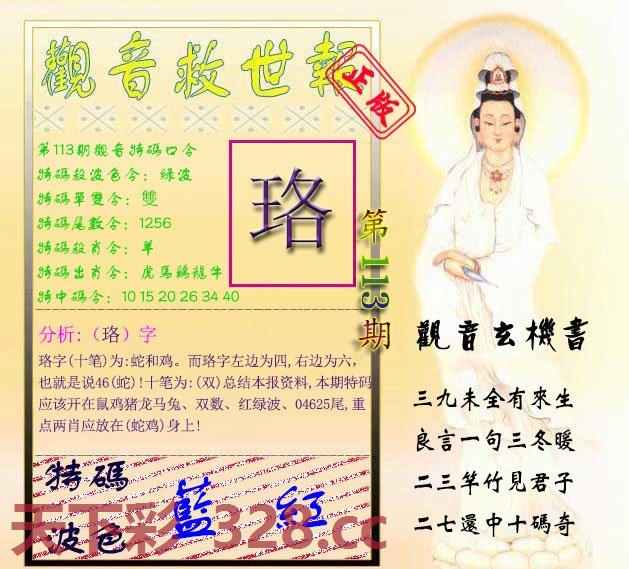 觀音救世報
正版
第113期觀音特碼口令
特碼殺波色令：綠波
特碼單雙令：雙
特碼尾數令：1256
特碼殺肖令：羊
特碼出肖令：虎馬鷄龍牛
特中碼令：10 15 20 26 34 40
珞
第113期
分析:（珞）字
珞字(十笔)为:蛇和鸡。而珞字左边为四,右边为六,
也就是说46(蛇)!十笔为:(双)总结本报资料,本期特码
应该开在鼠鸡猪龙马兔、双数、红绿波、04625尾,重
点两肖应放在(蛇鸡)身上!
特碼
波色
藍 紅
天下彩 328.cc
觀音玄機書
三九未全有來生
良言一句三冬暖
二三竿竹見君子
二七還中十碼奇